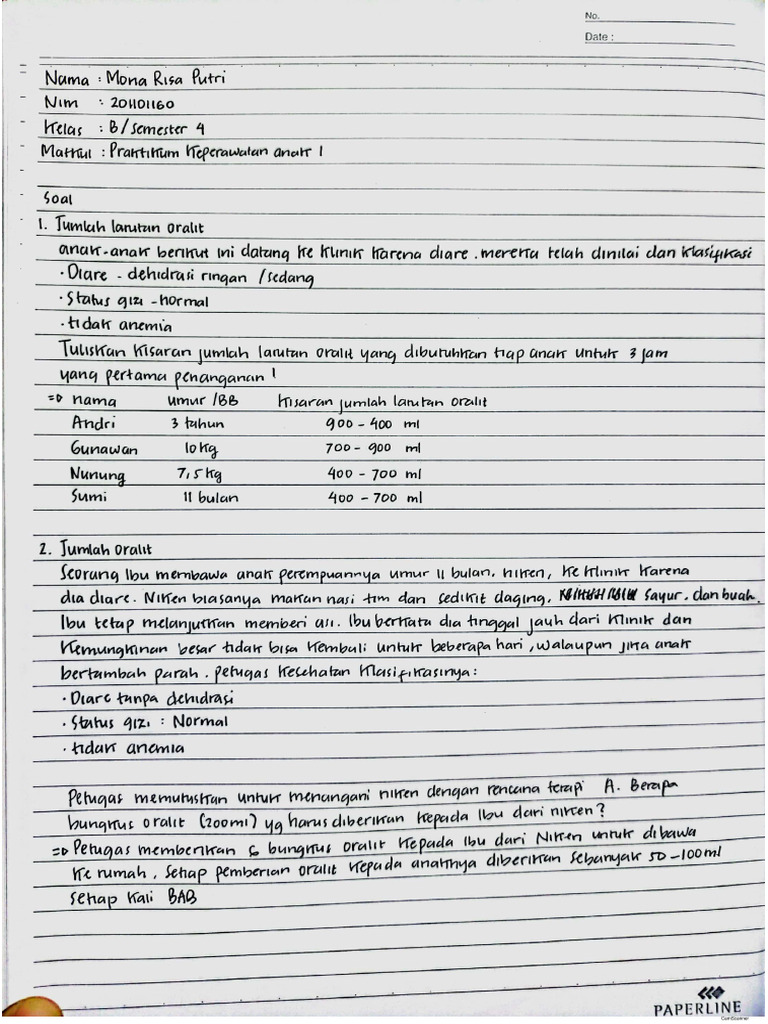 No.
Date :
Nama : Mona Risa Putri
Nim : 201101160
Kelas : B/Semester 4
Matkul : Praktikum Keperawatan anak 1
Soal
1. Jumlah larutan oralit
anak-anak berikut ini datang ke klinik karena diare. mereka telah dinilai dan klasifikasi
· Diare - dehidrasi ringan /sedang
· Status gizi - normal
· tidak anemia
Tuliskan kisaran jumlah larutan oralit yang dibutuhkan tiap anak untuk 3 jam
yang pertama penanganan!
=> nama umur /BB kisaran jumlah larutan oralit
Andri 3 tahun 900 - 400 ml
Gunawan 10 kg 700 - 900 ml
Nunung 7,5 kg 400 - 700 ml
Sumi 11 bulan 400 - 700 ml
2. Jumlah oralit
Seorang Ibu membawa anak perempuannya umur 11 bulan, niken, ke klinik karena
dia diare. Niken biasanya makan nasi tim dan sedikit daging, sayur, dan buah.
Ibu tetap melanjutkan memberi asi. Ibu berkata dia tinggal jauh dari klinik dan
kemungkinan besar tidak bisa kembali untuk beberapa hari, walaupun jika anak
bertambah parah. petugas kesehatan klasifikasinya :
· Diare tanpa dehidrasi
· Status gizi : Normal
· tidak anemia
Petugas memutuskan untuk menangani niken dengan rencana terapi A. Berapa
bungkus oralit (200ml) yg harus diberikan kepada Ibu dari niken?
=> Petugas memberikan 6 bungkus oralit kepada Ibu dari Niken untuk dibawa
ke rumah, setiap pemberian oralit kepada anaknya diberikan sebanyak 50-100ml
setiap kali BAB
PAPERLINE
CamScanner